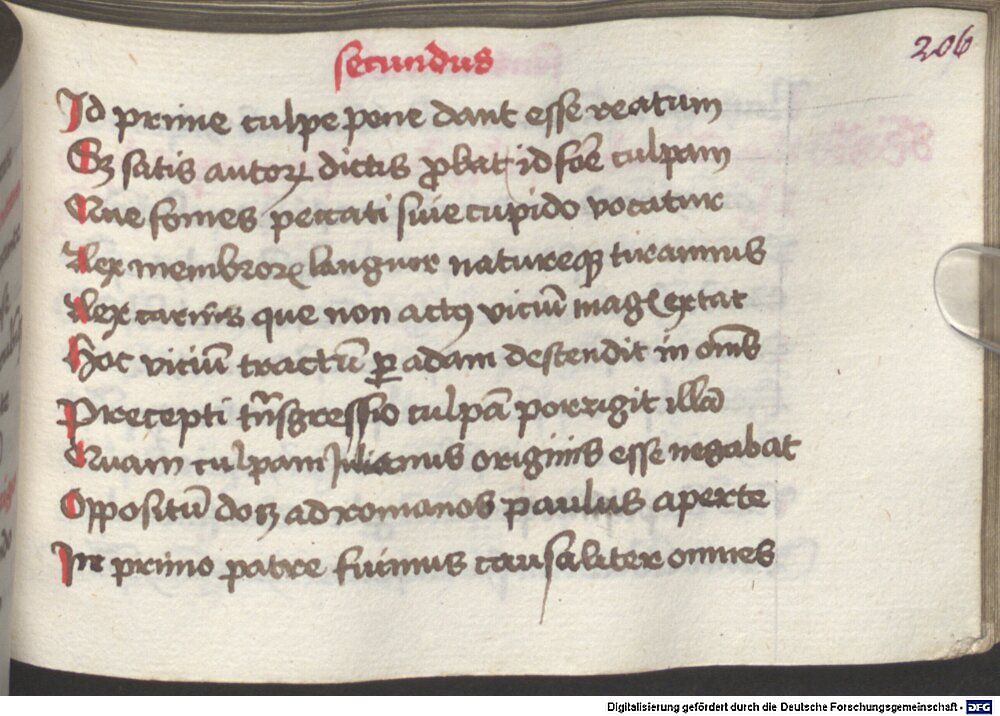 secundus
206
Id prime culpe pene dant esse reatum
Sꝫ satis autorꝝ dictis ꝓbat id fore culpam
Que fomes peccati siue cupido vocatur
Lex membrorꝝ languor natureqꝫ tirannus
Lex carnis que non actꝰ viciū magꝭ extat
Hoc viciū tractū ꝑ adam descendit in om̄s
Precepti tͣnsgressio culpā porrigit illā
Quam culpam Julianus originis esse negabat
Oppositū docꝫ ad romanos paulus aperte
In primo patre fuimus causaliter omnes
Digitalisierung gefördert durch die Deutsche Forschungsgemeinschaft - DFG